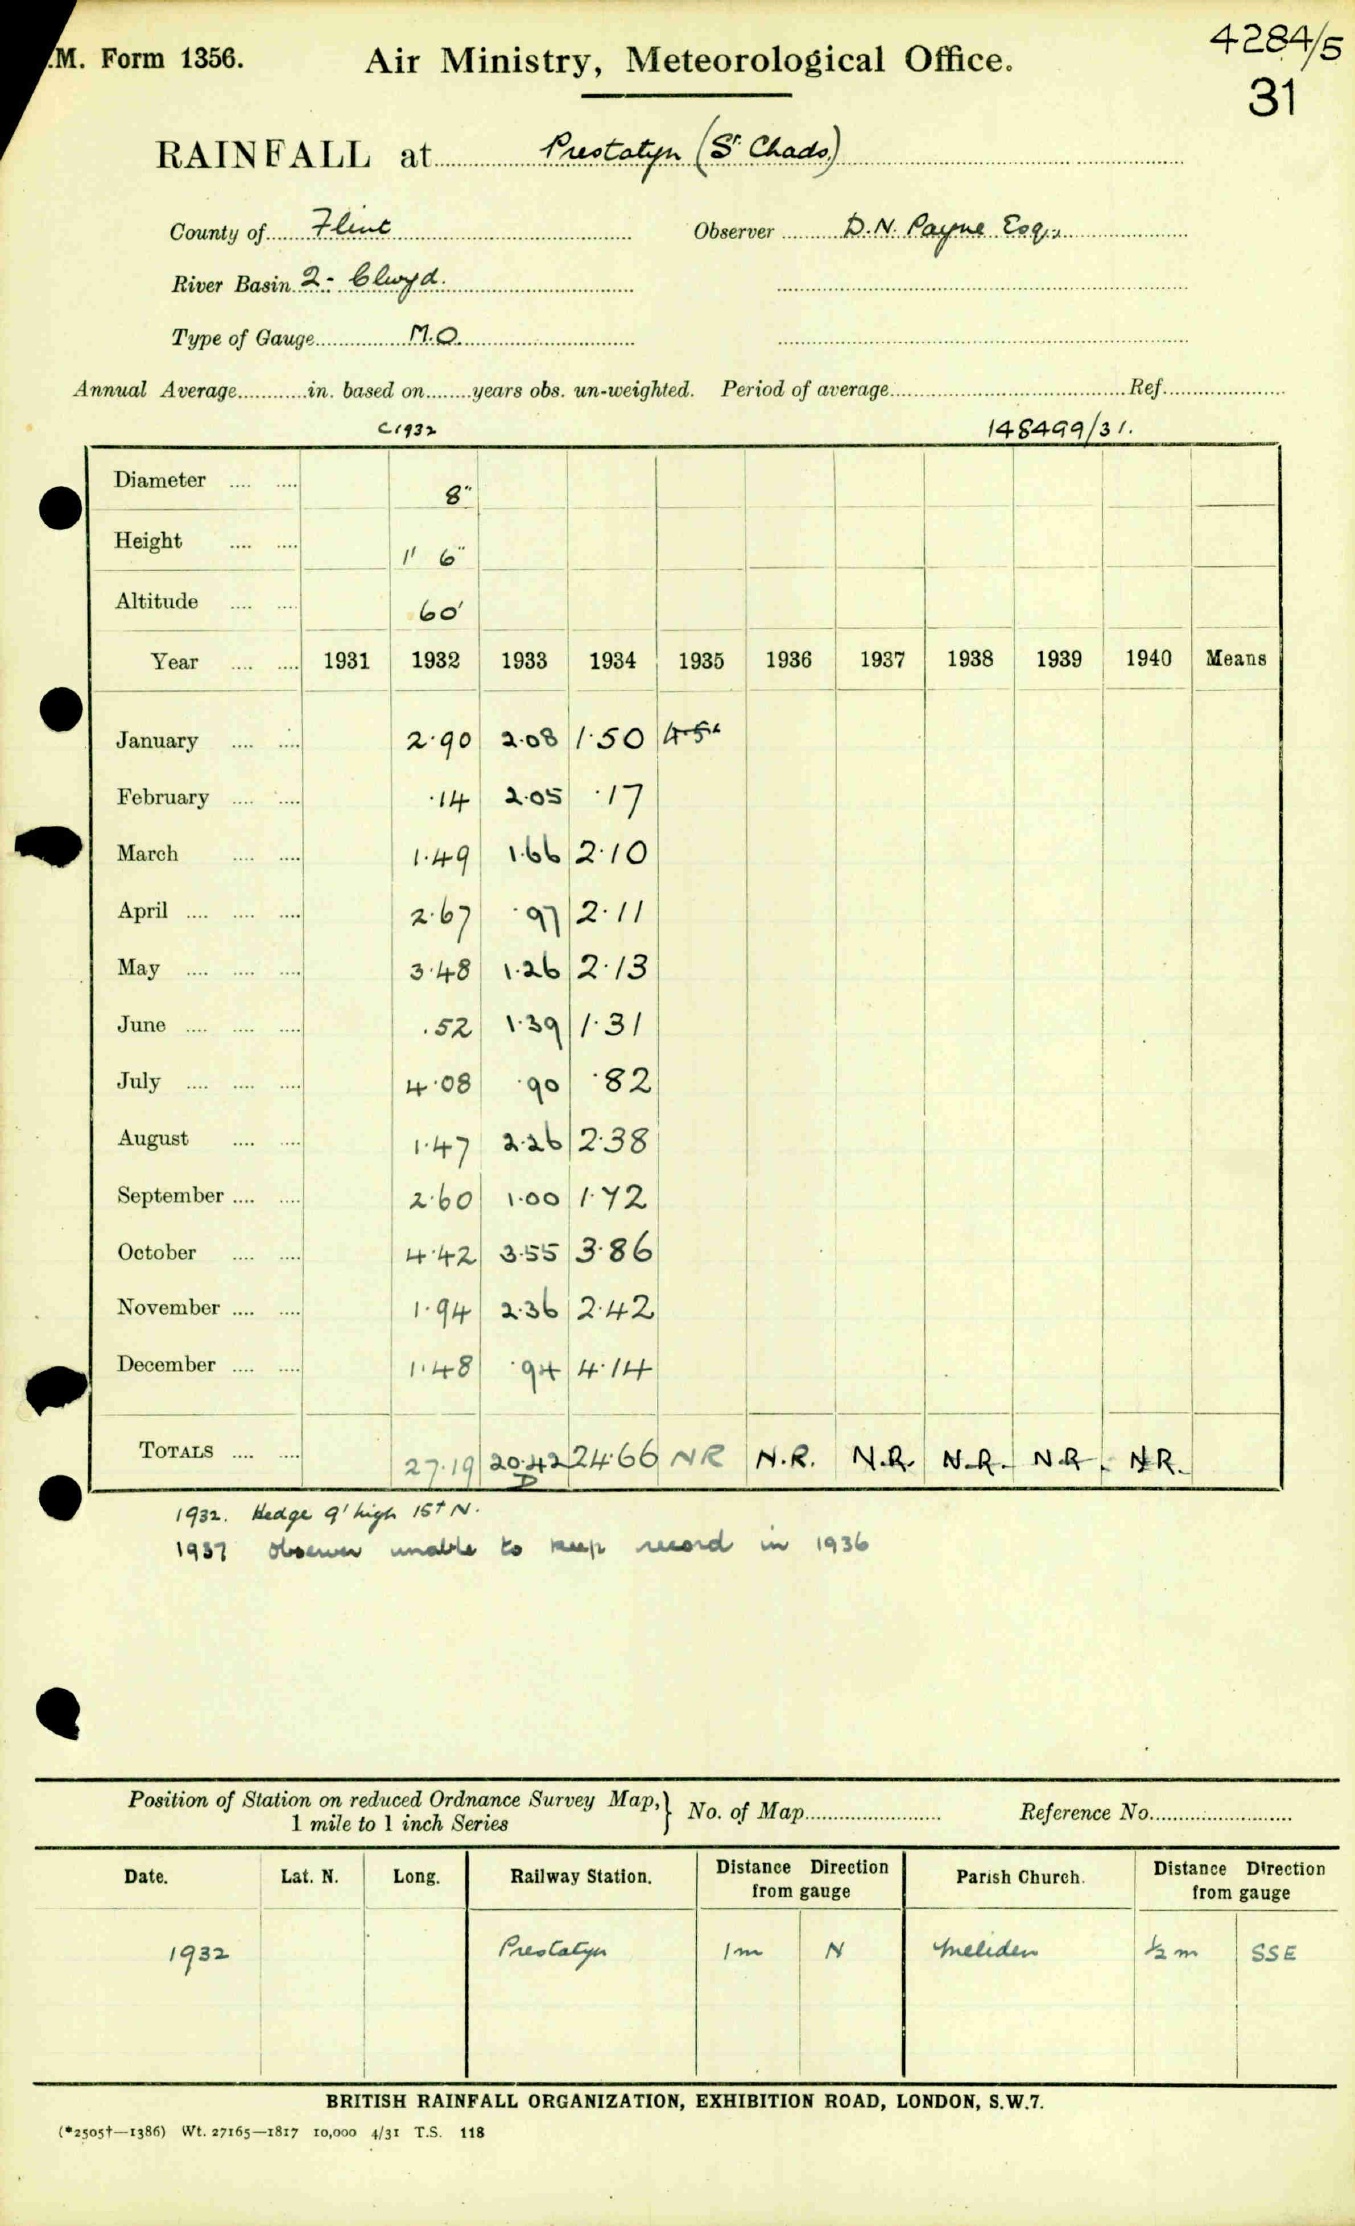 4284/5
.M. Form 1356. Air Ministry, Meteorological Office.
31
RAINFALL at Prestatyn (St Chads.)
County of Flint Observer D.N. Payne Esq.
River Basin 2 - Clwyd.
Type of Gauge M.O.
Annual Average in. based on years obs. un-weighted. Period of average Ref.
c 1932 148499/31.
Diameter 8"
Height 1' 6"
Altitude 60'
Year 1931 1932 1933 1934 1935 1936 1937 1938 1939 1940 Means
January 2.90 2.08 1.50
February .14 2.05 .17
March 1.49 1.66 2.10
April 2.67 .97 2.11
May 3.48 1.26 2.13
June .52 1.39 1.31
July 4.08 .90 .82
August 1.47 2.26 2.38
September 2.60 1.00 1.72
October 4.42 3.55 3.86
November 1.94 2.36 2.42
December 1.48 .94 4.14
TOTALS 27.19 20.42 24.66 NR N.R. N.R. N.R. N.R. N.R.
D
1932. Hedge 9' high 15 N.
1937 Observer unable to keep record in 1936
Position of Station on reduced Ordnance Survey Map, } No. of Map Reference No.
1 mile to 1 inch Series
Date. Lat. N. Long. Railway Station. Distance Direction from gauge Parish Church. Distance Direction from gauge
1932 Prestatyn 1 m N Meliden ½ m SSE
BRITISH RAINFALL ORGANIZATION, EXHIBITION ROAD, LONDON, S.W.7.
(*2505†—1386) Wt. 27165—1817 10,000 4/31 T.S. 118